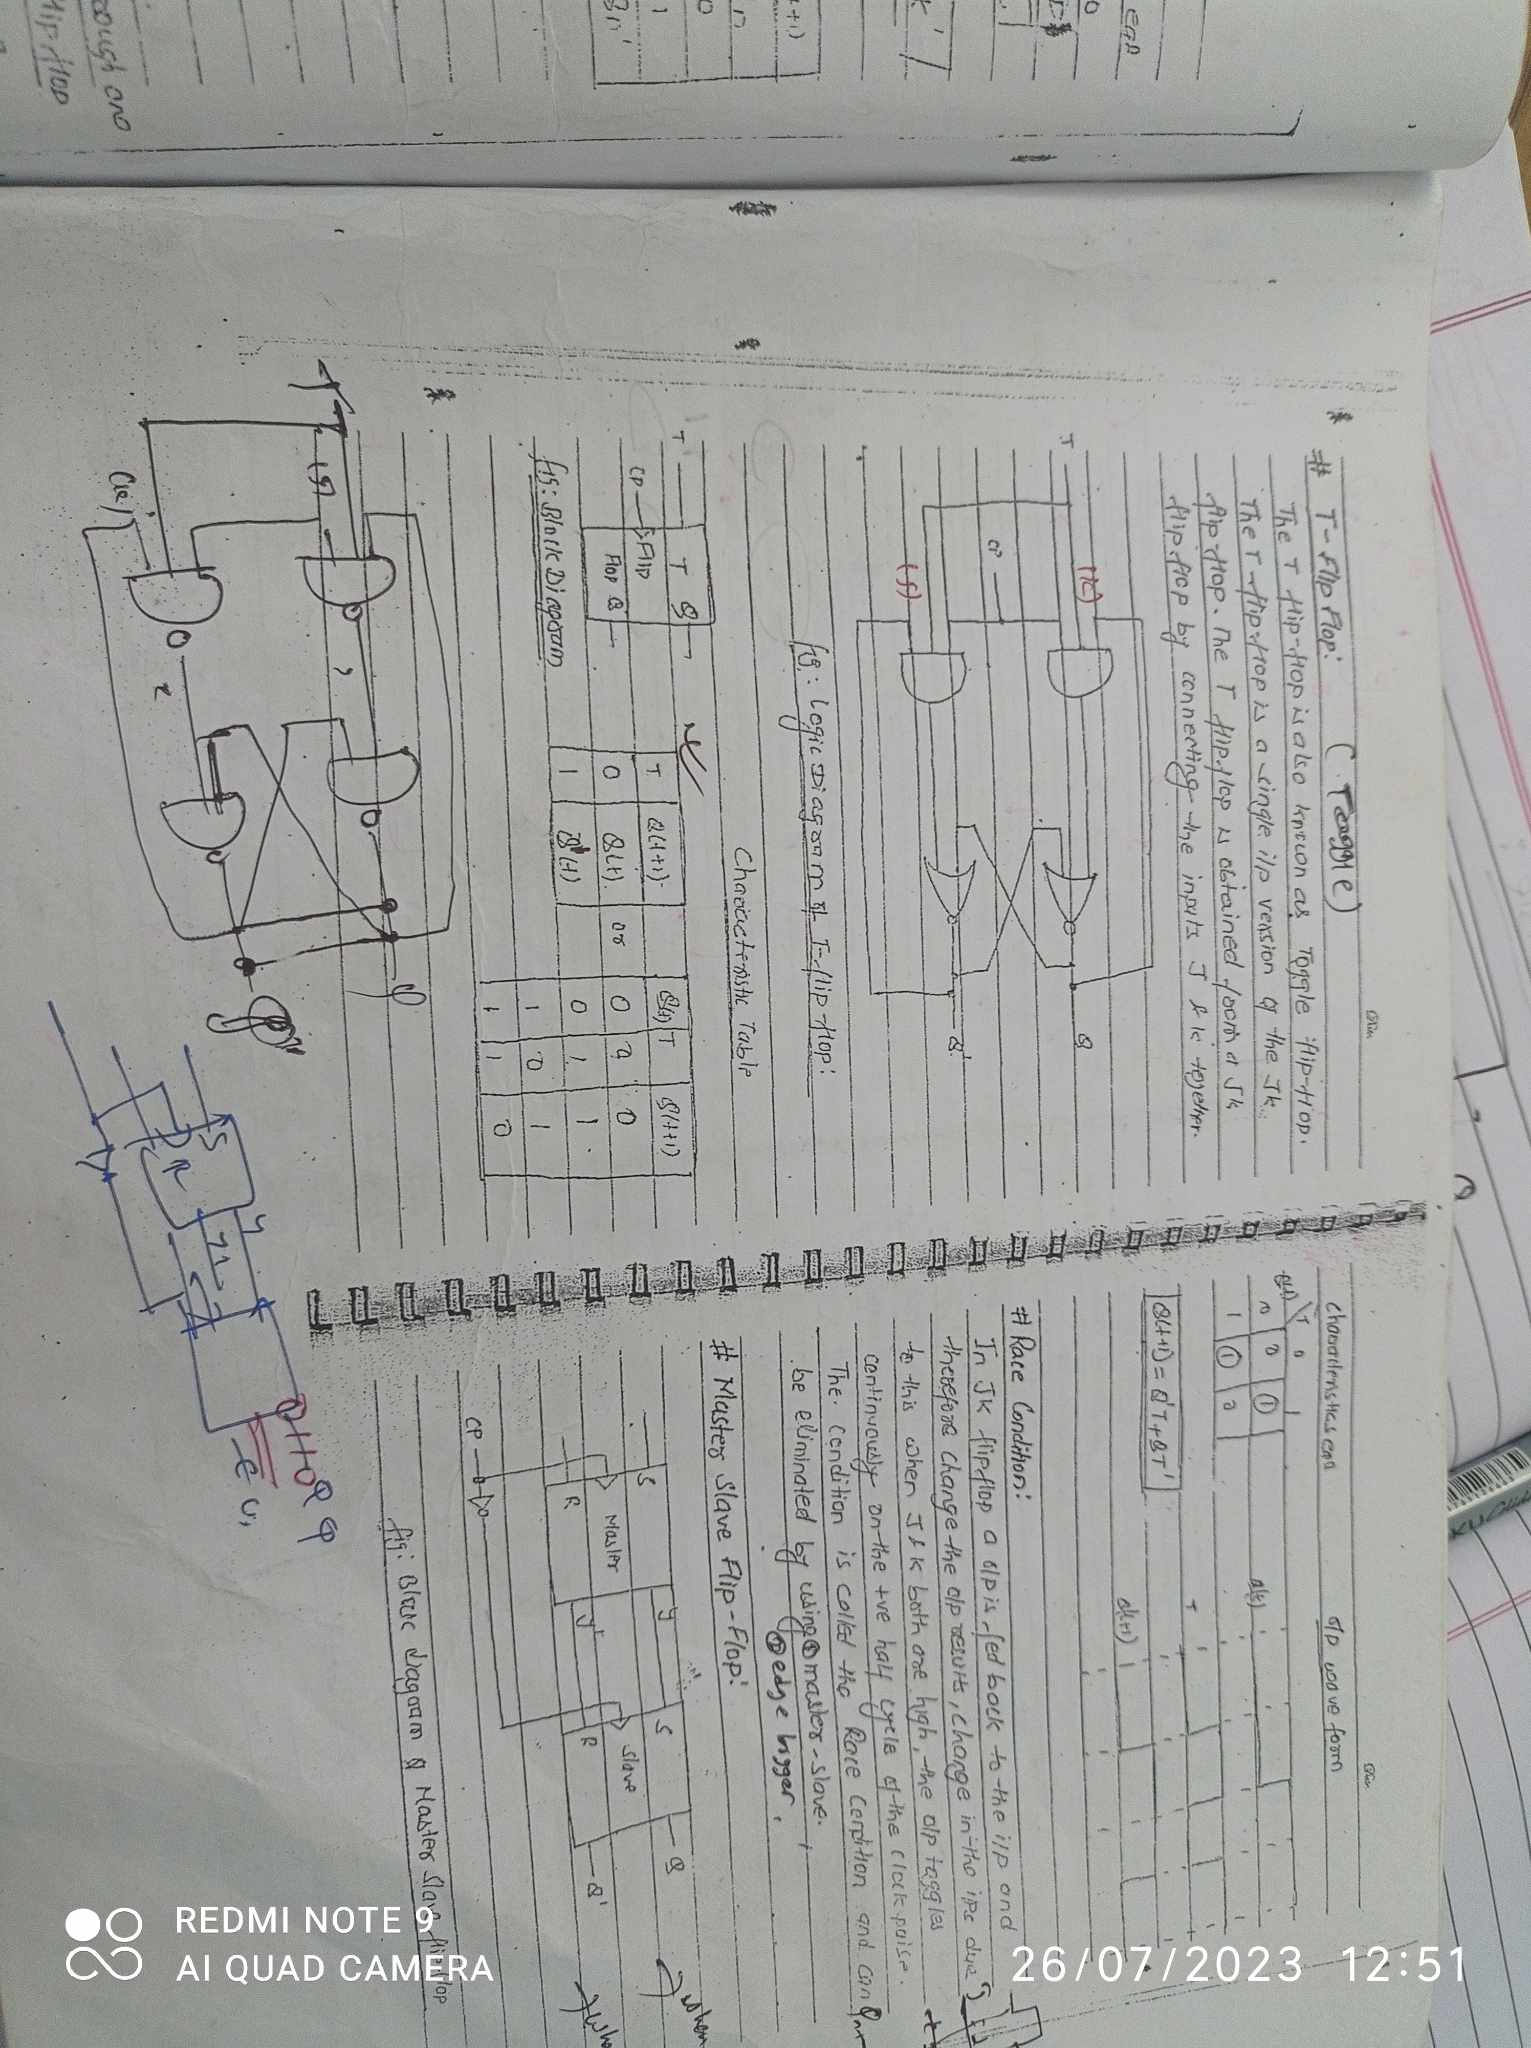 # T-Flip Flop: (Toggle)
The T flip-flop is also known as Toggle flip-flop.
The T flip-flop is a single i/p version of the Jk
flip-flop. The T flip-flop is obtained from a Jk
flip-flop by connecting the inputs J & k together.
T
(k)
CP
(J)
Q
Q'
fig: Logic Diagram of T-flip flop:
Characteristic Table
T
CP
T Q
Flip
Flop Q
fig: Block Diagram
T Q(t+1)
0 Q(t)
1 Q'(t)
or
Q(t) T Q(t+1)
0 0 0
0 1 1
1 0 1
1 1 0
T
(J)
(k)
S
R
Y
Q
characteristics eqn
o/p wave form
Q(t) T 0 1
0 0 1
1 1 0
Q(t+1) = Q'T + QT'
Q(t)
T
Q(t+1)
# Race Condition:
In Jk flipflop a o/p is fed back to the i/p and
therefore change the o/p results, change in the i/p due
to this when J & k both are high, the o/p toggles
continuously on the +ve half cycle of the clock pulse.
The condition is called the Race condition and can
be eliminated by using ① master-slave.
② edge trigger.
# Master Slave Flip-Flop:
S Master Y S Slave Q
R Y' R Q'
CP
when
fig: Block diagram of Master Slave flip flop
flip flop
REDMI NOTE 9
AI QUAD CAMERA
26/07/2023 12:51